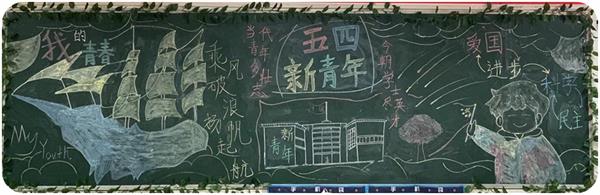 我的青春
My Youth
乘风
破浪
扬帆
起航
当代青年多壮志
五四
新青年
今朝学子
英才
新
青年
爱国
进步
科学
民主